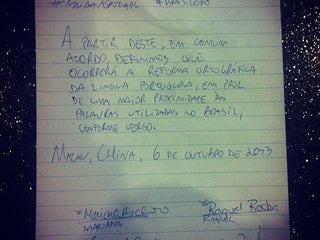 A PARTIR DESTE, EM COMUM
ACORDO, DEFINIMOS QUE
OCORRERÁ A REFORMA ORTOGRÁFICA
DA LÍNGUA PORTUGUESA, EM PROL
DE UMA MAIOR PROXIMIDADE ÀS
PALAVRAS UTILIZADAS NO BRASIL,
CONFORME VERSO.
MACAU, CHINA, 6 DE OUTUBRO DE 2013
Raquel Rocha
MARIANA RAQUEL